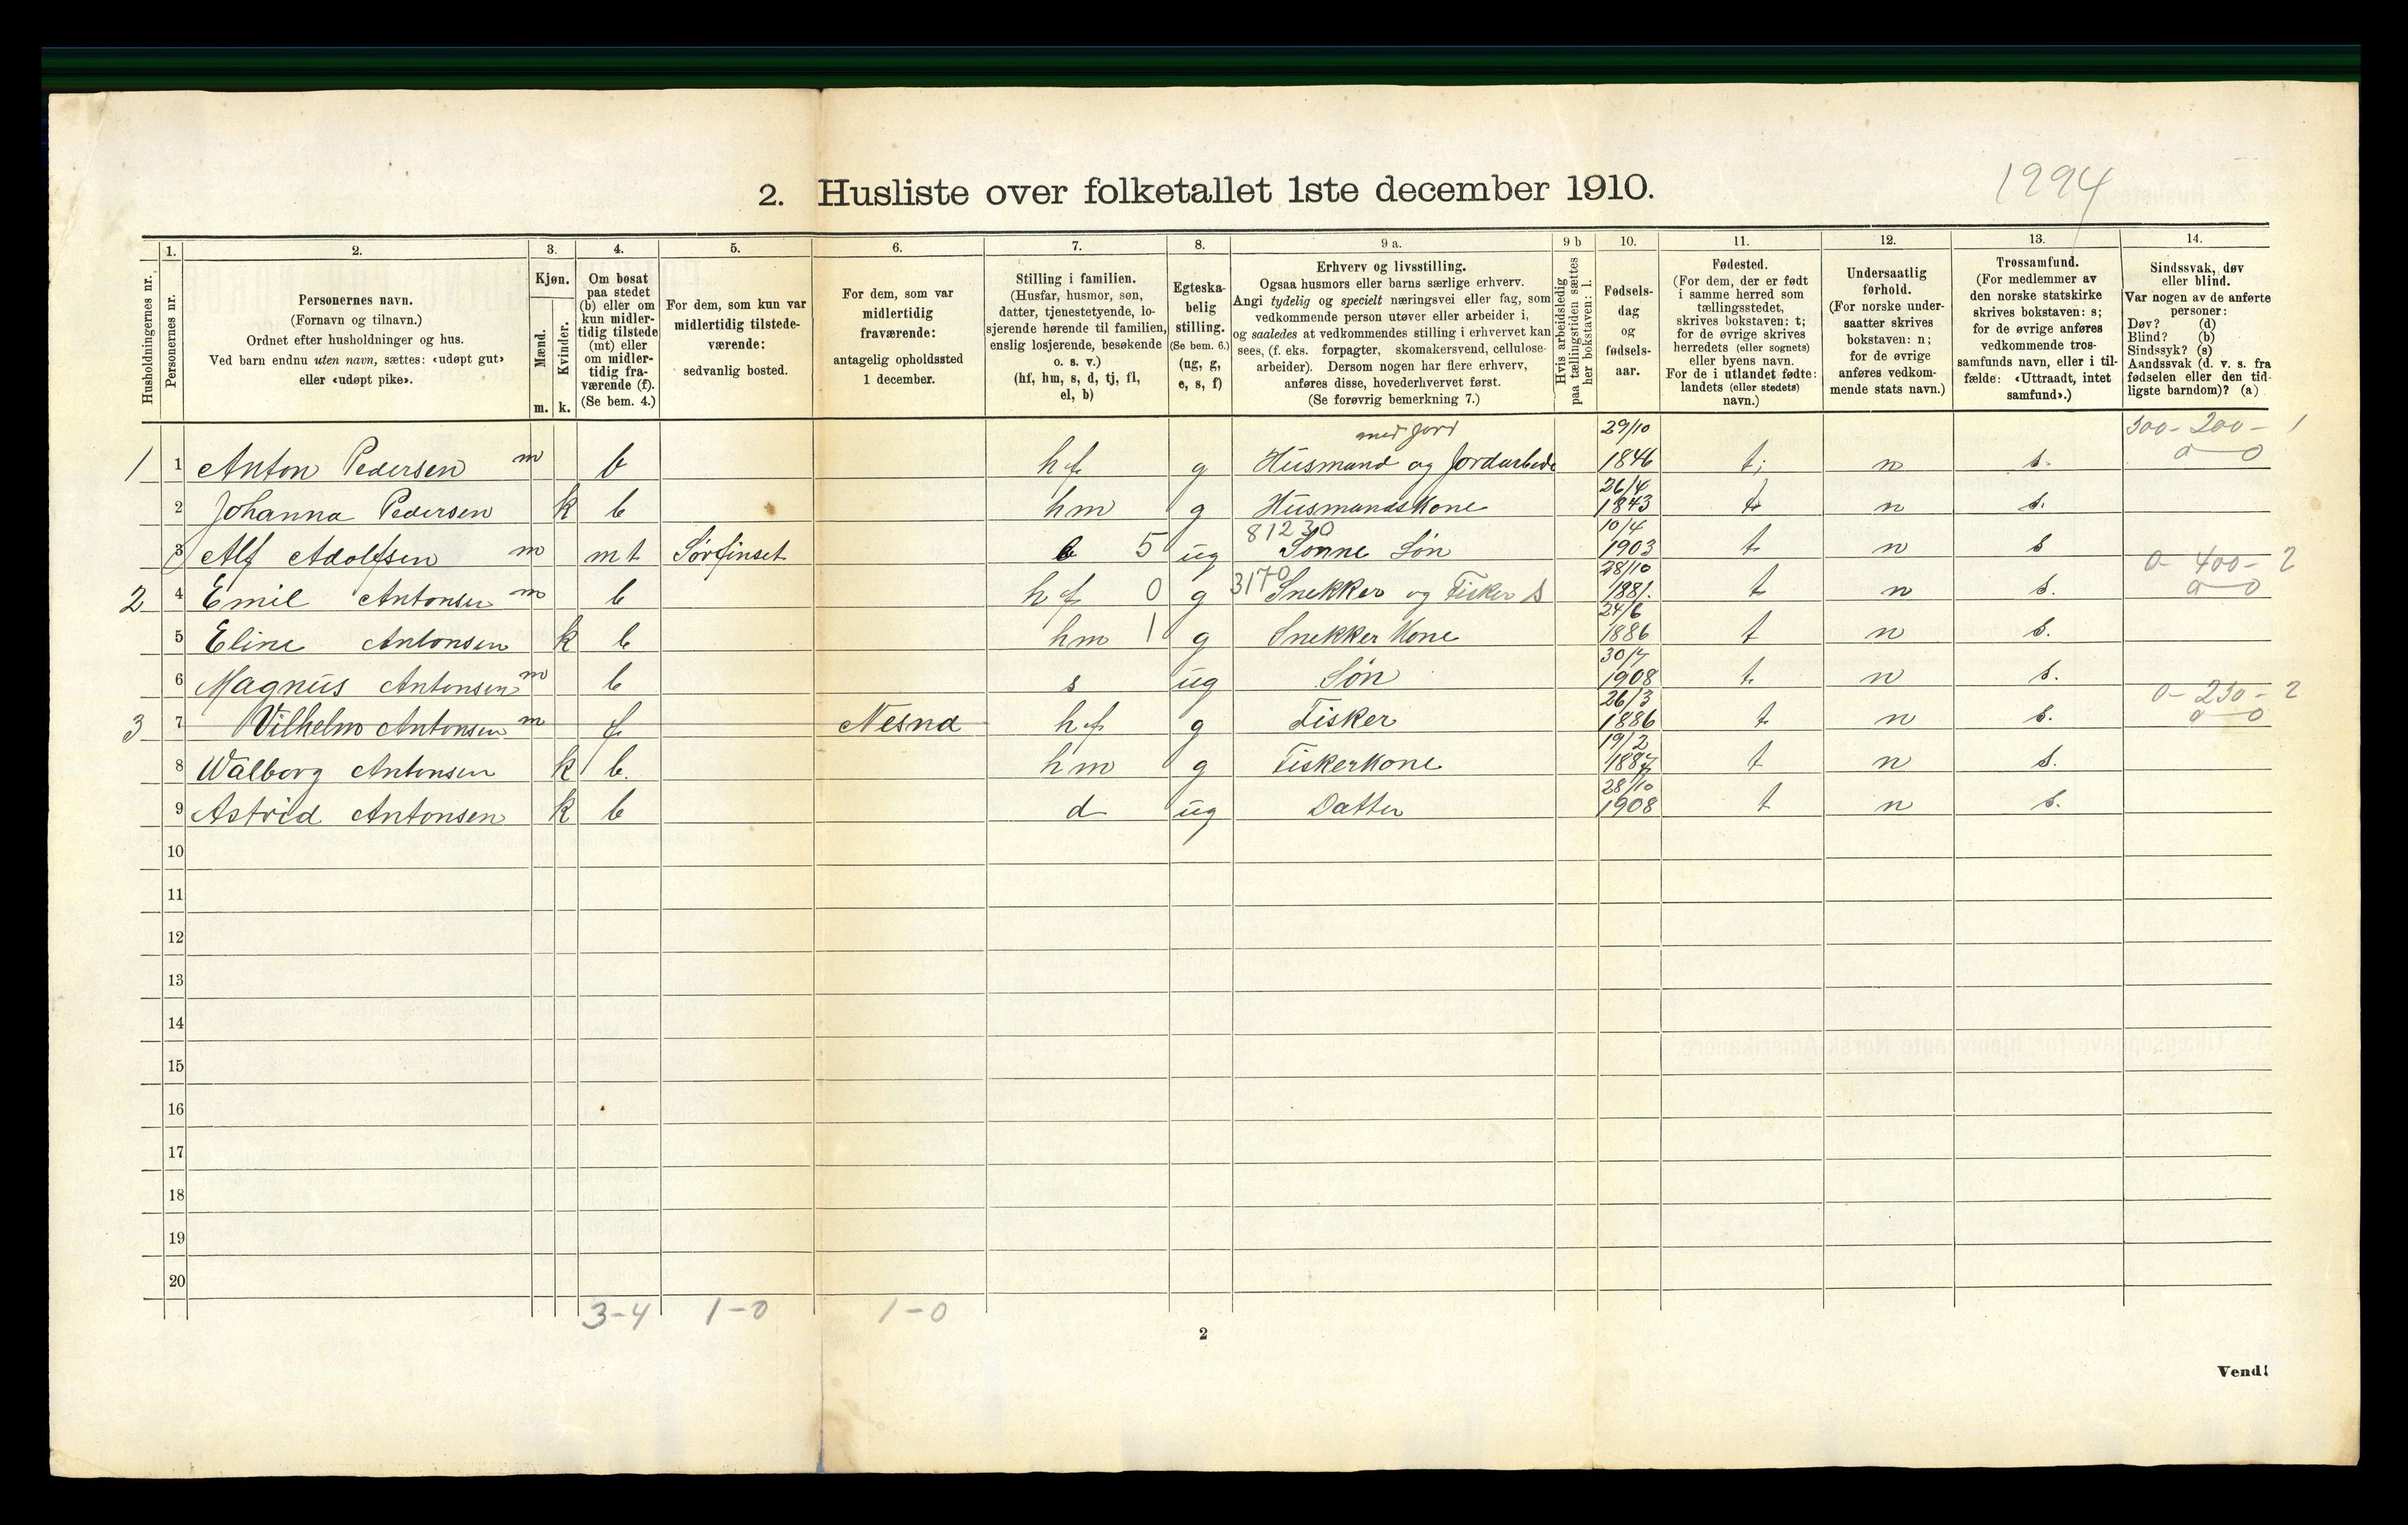 1994
2. Husliste over folketallet 1ste december 1910.
Husholdningernes nr.
1.
Personernes nr.
2.
Personernes navn.
(Fornavn og tilnavn.)
Ordnet efter husholdninger og hus.
Ved barn endnu uten navn, sættes: «udøpt gut»
eller «udøpt pike».
3.
Kjøn.
Mænd.
Kvinder.
m. k.
4.
Om bosat
paa stedet
(b) eller om
kun midler-
tidig tilstede
(mt) eller
om midler-
tidig fra-
værende (f).
(Se bem. 4.)
5.
For dem, som kun var
midlertidig tilstede-
værende:
sedvanlig bosted.
6.
For dem, som var
midlertidig
fraværende:
antagelig opholdssted
1 december.
7.
Stilling i familien.
(Husfar, husmor, søn,
datter, tjenestetyende, lo-
sjerende hørende til familien,
enslig losjerende, besøkende
o. s. v.)
(hf, hm, s, d, tj, fl,
el, b)
8.
Egteska-
belig
stilling.
(Se bem. 6.)
(ug, g,
e, s, f)
9 a.
Erhverv og livsstilling.
Ogsaa husmors eller barns særlige erhverv.
Angi tydelig og specielt næringsvei eller fag, som
vedkommende person utøver eller arbeider i,
og saaledes at vedkommendes stilling i erhvervet kan
sees, (f. eks. forpagter, skomakersvend, cellulose-
arbeider). Dersom nogen har flere erhverv,
anføres disse, hovederhvervet først.
(Se forøvrig bemerkning 7.)
9 b
Hvis arbeidsledig
paa tællingstiden sættes
her bokstaven: l.
10.
Fødsels-
dag
og
fødsels-
aar.
11.
Fødested.
(For dem, der er født
i samme herred som
tællingsstedet,
skrives bokstaven: t;
for de øvrige skrives
herredets (eller sognets)
eller byens navn.
For de i utlandet fødte:
landets (eller stedets)
navn.)
12.
Undersaatlig
forhold.
(For norske under-
saatter skrives
bokstaven: n;
for de øvrige
anføres vedkom-
mende stats navn.)
13.
Trossamfund.
(For medlemmer av
den norske statskirke
skrives bokstaven: s;
for de øvrige anføres
vedkommende tros-
samfunds navn, eller i til-
fælde: «Uttraadt, intet
samfund».)
14.
Sindssvak, døv
eller blind.
Var nogen av de anførte
personer:
Døv? (d)
Blind? (b)
Sindssyk? (s)
Aandssvak (d. v. s. fra
fødselen eller den tid-
ligste barndom)? (a)
med jord 29/10 300- 200- 1
1 1 Anton Pedersen m b hf g Husmand og Jordarbeide 1846 t; n s. 0 0
26/4
2 Johanna Pedersen k b hm g Husmandskone 1843 t n s.
81230 10/4
3 Alf Adolfsen m mt Sørfinset b 5 ug Sønne Søn 1903 t n s
3170 28/10 0- 400- 2
2 4 Emil Antonsen m b hf 0 g Snekker og Fisker s 1881. t n s. 0 0
24/6
5 Eline Antonsen k b hm 1 g Snekker Kone 1886 t n s.
30/7
6 Magnus Antonsen m b s ug Søn 1908 t n s.
26/3 0- 250- 2
3 7 Vilhelm Antonsen m f Nesna hf g Fisker 1886 t n s. 0 0
19/2
8 Walborg Antonsen k b. hm g Fiskerkone 1887 t n s.
28/10
9 Astrid Antonsen k b d ug Datter 1908 t n s.
10
11
12
13
14
15
16
17
18
19
20
3-4 1-0 1-0
2
Vend!